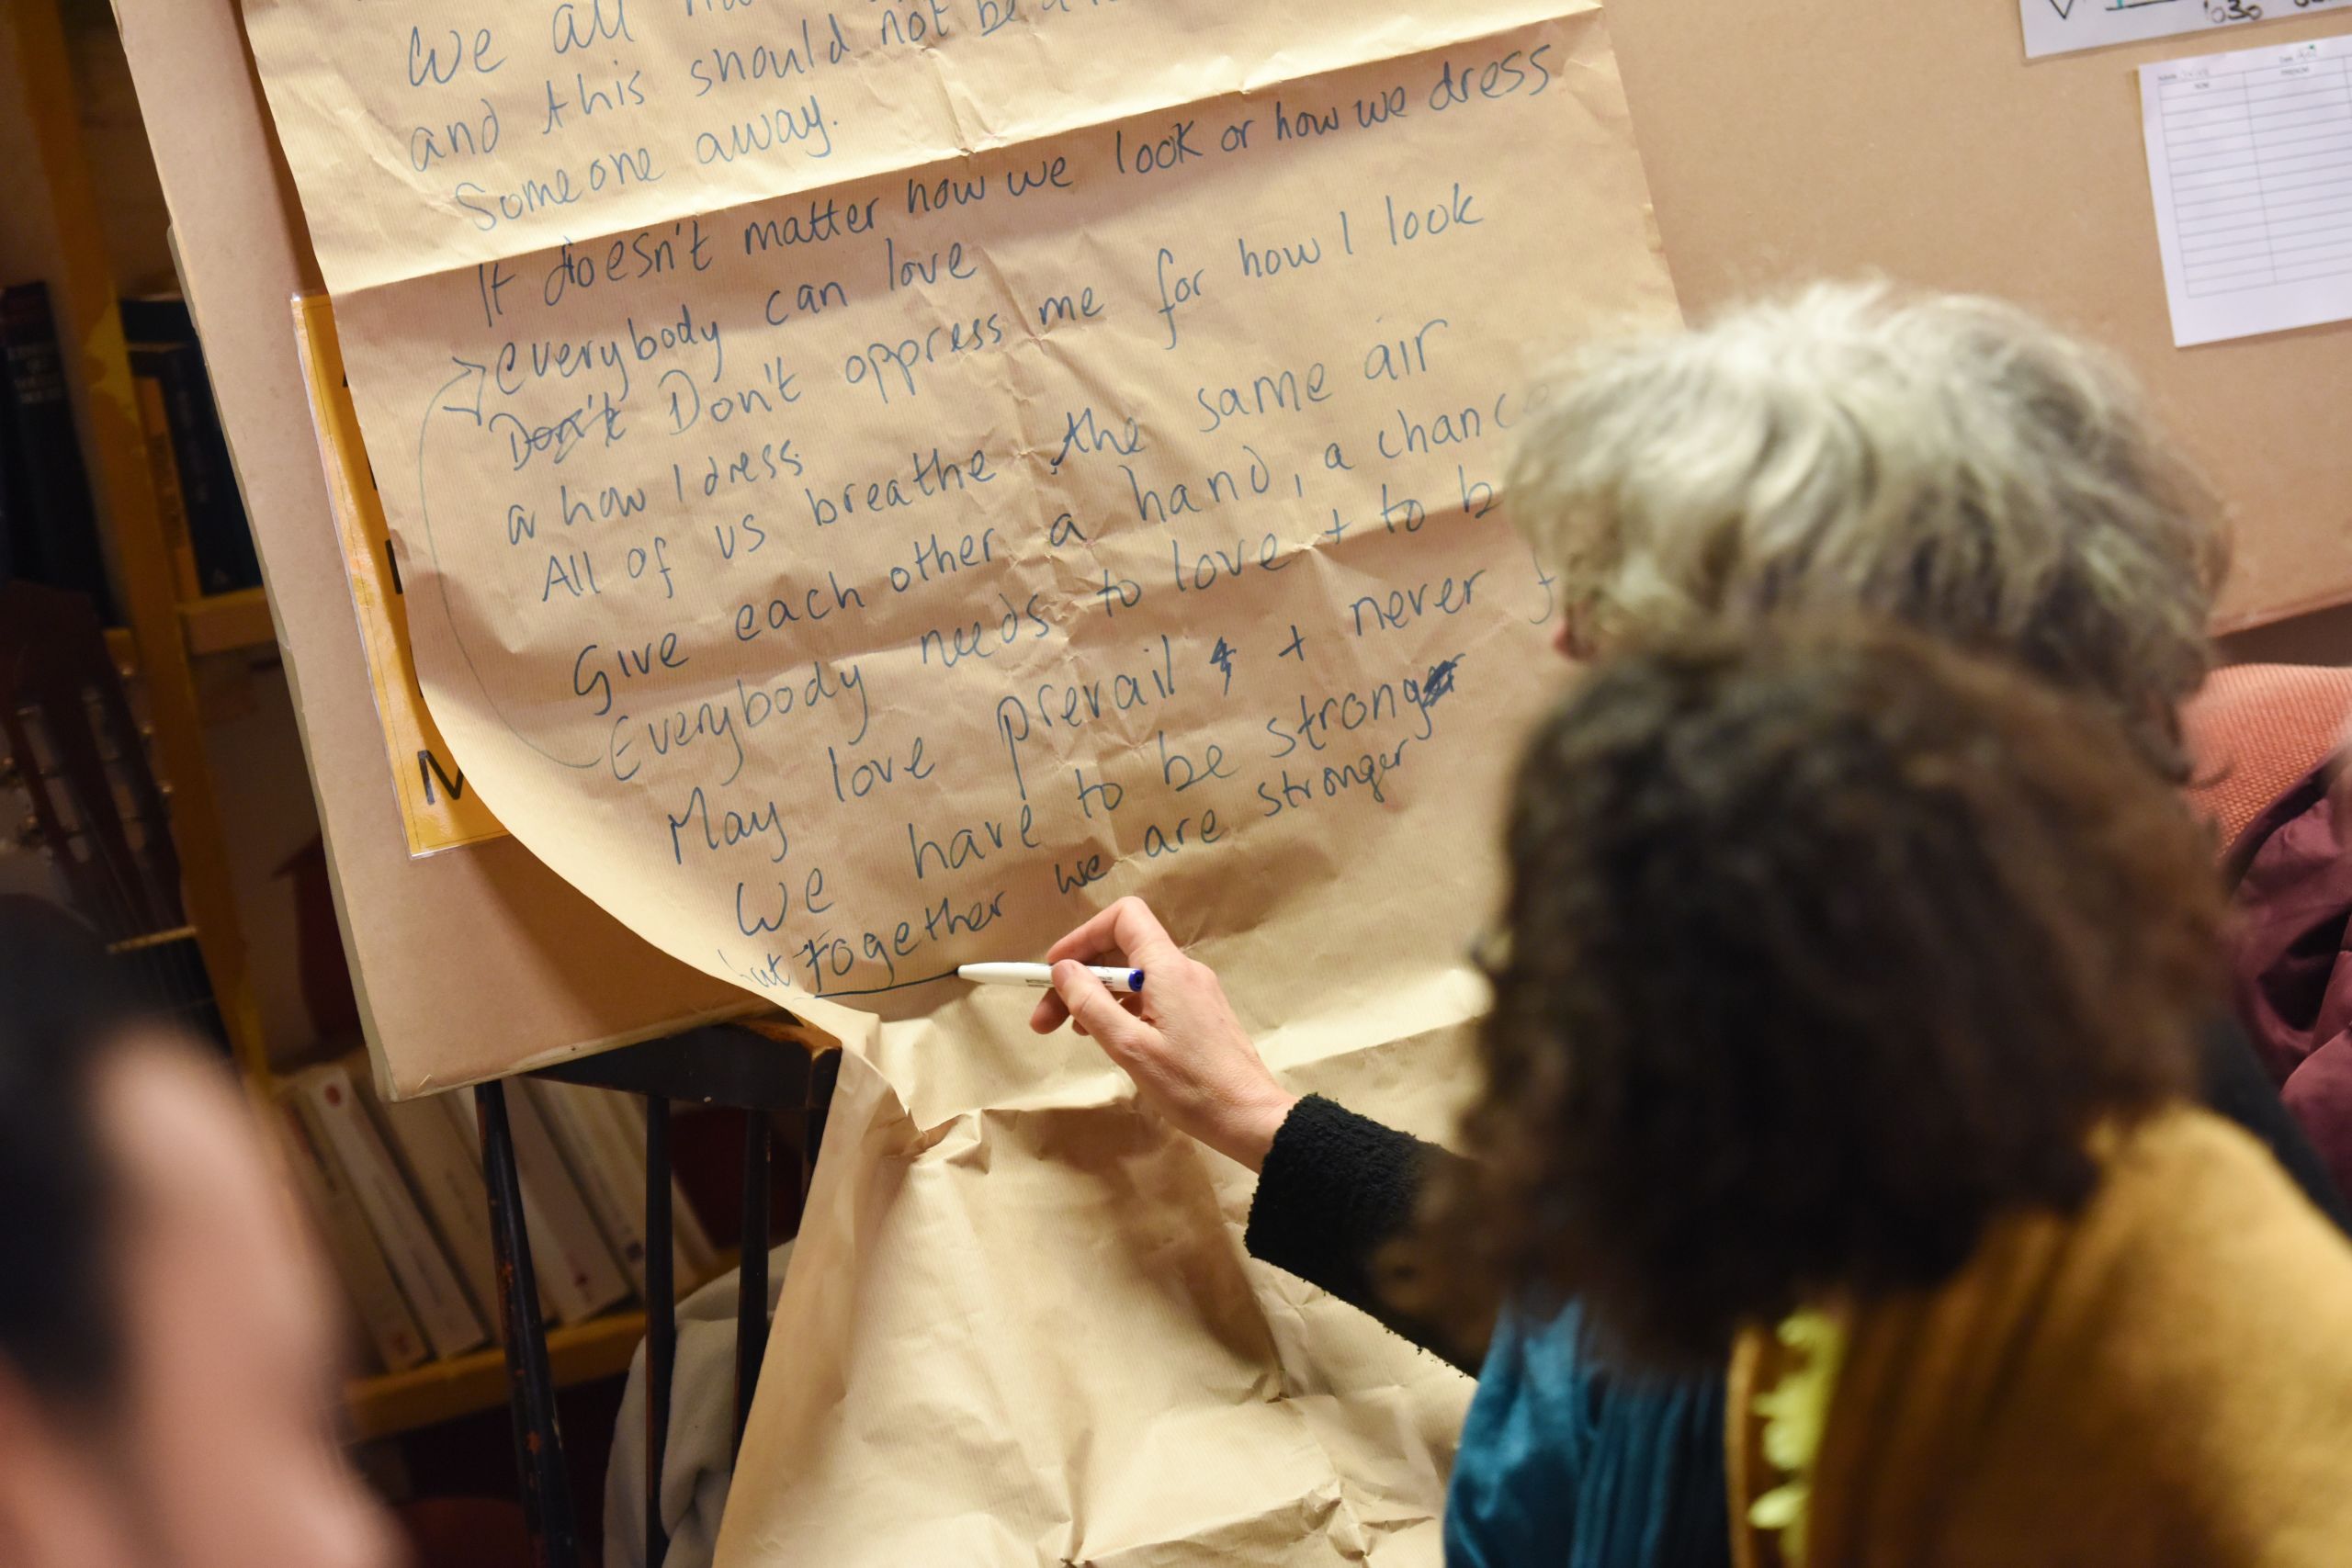 We all
and this should not be a
Someone away.
It doesn't matter how we look or how we dress
everybody can love
Don't Don't oppress me for how I look
or how I dress.
All of us breathe the same air
Give each other a hand, a chance
Everybody needs to love + to b
May love prevail + never f
We have to be strong
but together we are stronger
M